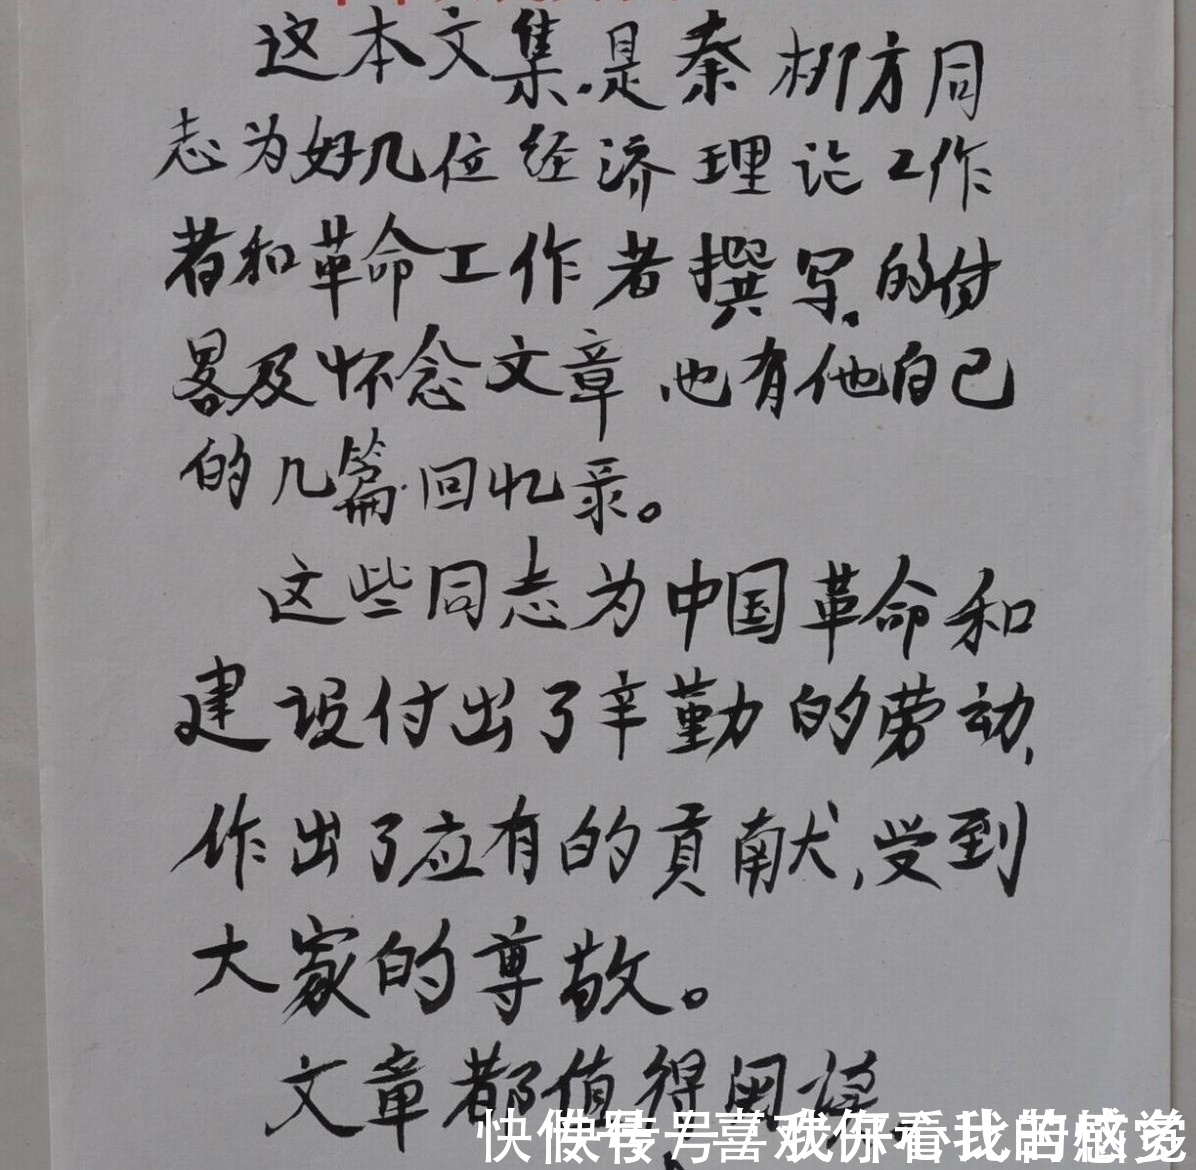 这本文集是秦柳方同
志为好几位经济理论工作
者和革命工作者撰写的传
略及怀念文章 也有他自己
的几篇回忆录。
这些同志为中国革命和
建设付出了辛勤的劳动,
作出了应有的贡献,受到
大家的尊敬。
文章都值得阅读
快传号